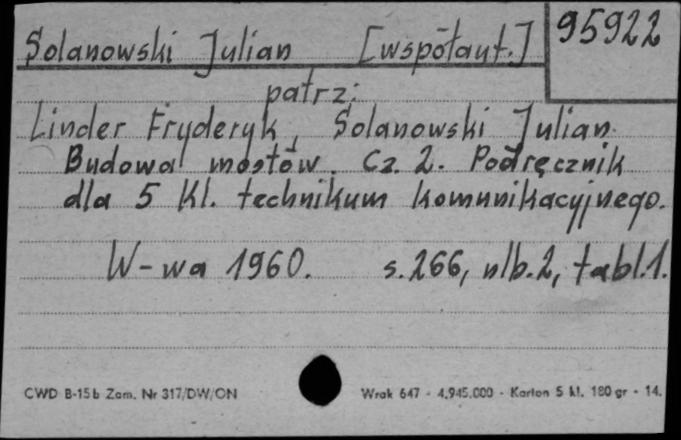 Solanowski Julian [współaut.] 95922
patrz:
Linder Fryderyk, Solanowski Julian.
Budowa mostów. Cz. 2. Podręcznik
dla 5 kl. technikum komunikacyjnego.
W-wa 1960. s. 266, nlb. 2, tabl. 1.
CWD B-15b Zam. Nr 317/DW/ON Wrak 647 - 4.945.000 - Karton 5 kl. 180 gr - 14.